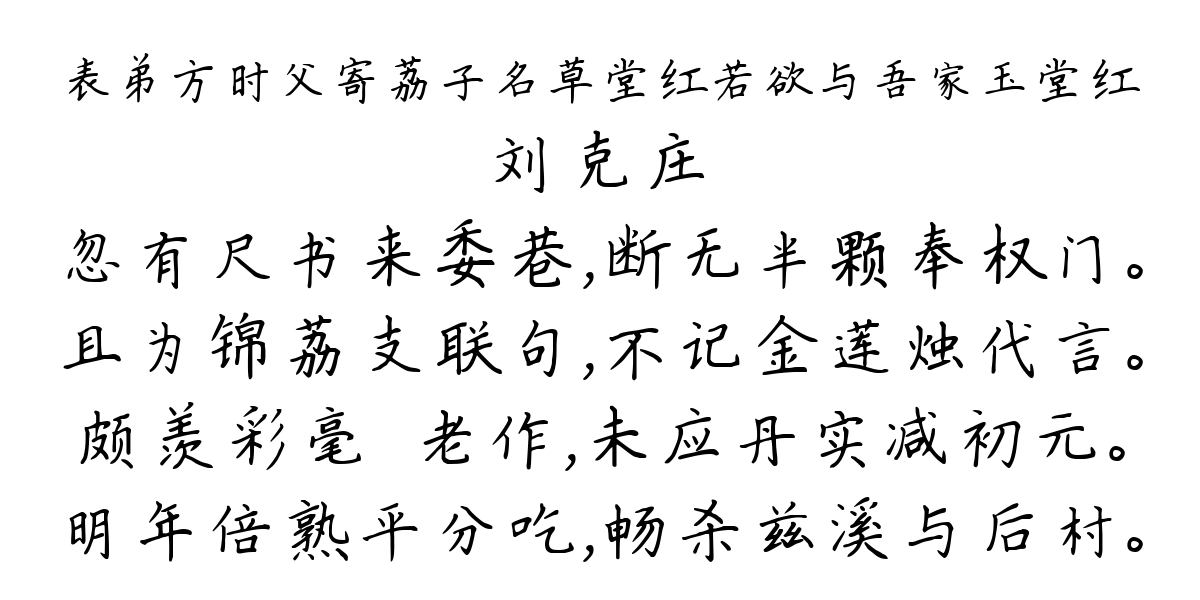 表弟方时父寄荔子名草堂红若欲与吾家玉堂红
刘克庄
忽有尺书来委巷,断无半颗奉权门。
且为锦荔支联句,不记金莲烛代言。
颇羡彩毫 老作,未应丹实减初元。
明年倍熟平分吃,畅杀兹溪与后村。